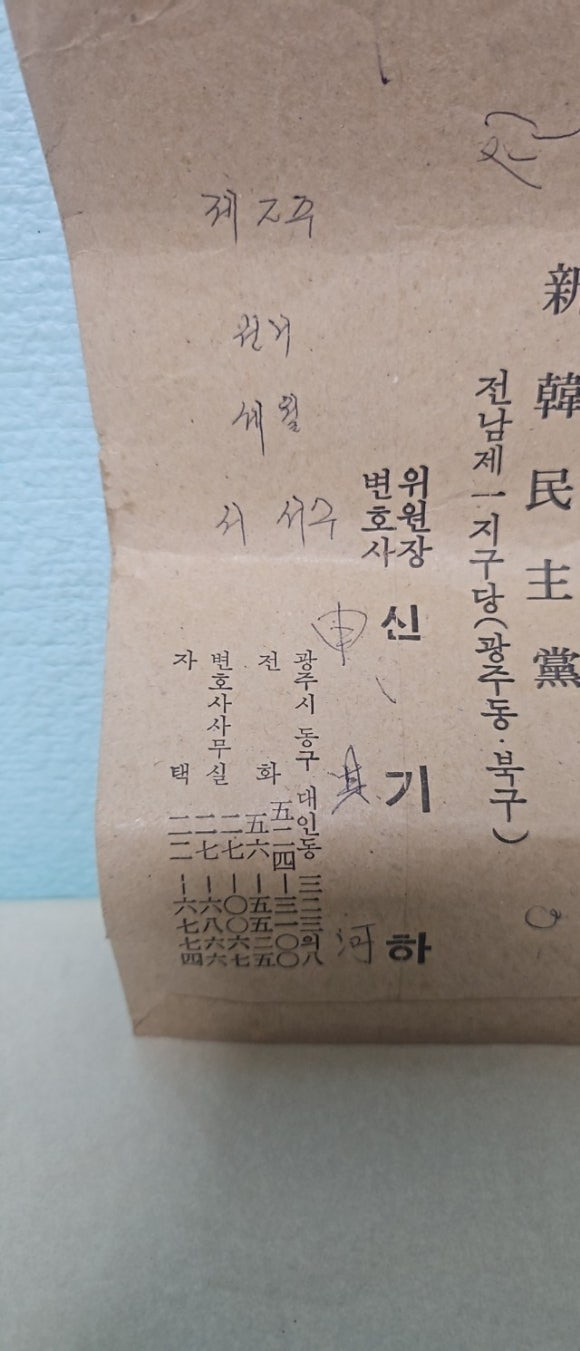 新韓民主黨
전남제一지구당(광주동·북구)
위원장
변호사
신기하
申 其 河
광주시 동구 대인동 三二三의八
전화 五二四ー三一〇〇
五六ー五五二五
변호사사무실 二七ー〇〇六七
二七ー六八六六
자택 二二ー六七七四
세월